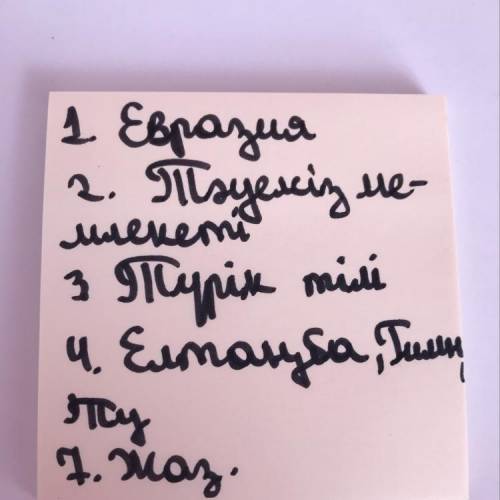 1. Евразия
2. Тәуелсіз ме-
млекеті
3 Түрік тілі
4. Елтаңуба, Гимн,
Ту
7. Жаз.